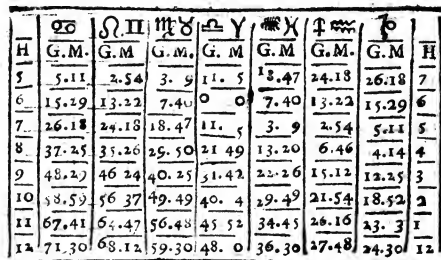 ♋ ♌ ♊ ♍ ♉ ♎ ♈ ♏ ♓ ♐ ♒ ♑
H G.M. G.M G.M. G. M G.M G.M G.M H
5 5.11 2.54 3. 9 11. 5 18.47 24.18 26.18 7
6 15.29 13.22 7.40 0 0 7.40 13.22 15.29 6
7 26.18 24.18 18.47 11. 5 3. 9 2.54 5.11 5
8 37.25 35.26 29.50 21 49 13.20 6.46 4.14 4
9 48.29 46 24 40.25 31.42 22.26 15.12 12.25 3
10 58.59 56 37 49.49 40. 4 29.49 21.54 18.52 2
11 67.41 64.47 56.48 45 52 34.45 26.16 23. 3 1
12 71.30 68.12 59.30 48. 0 36.30 27.48 24.30 12